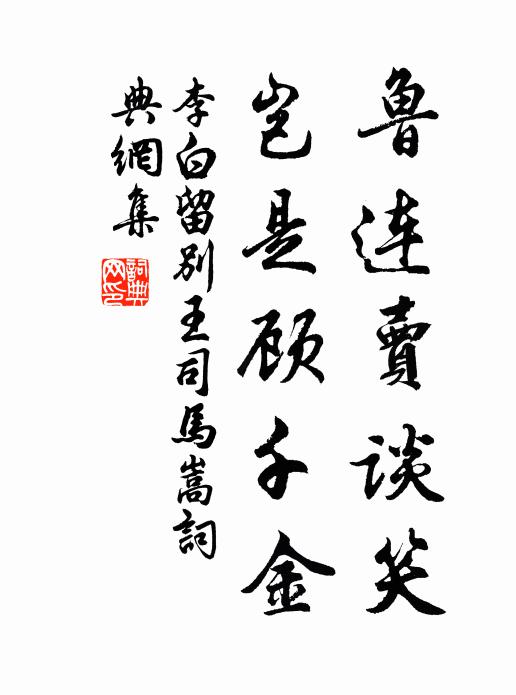 鲁连賣谈笑
岂是顾千金
李白留别王司馬嵩詞
典網集
詞典
网印